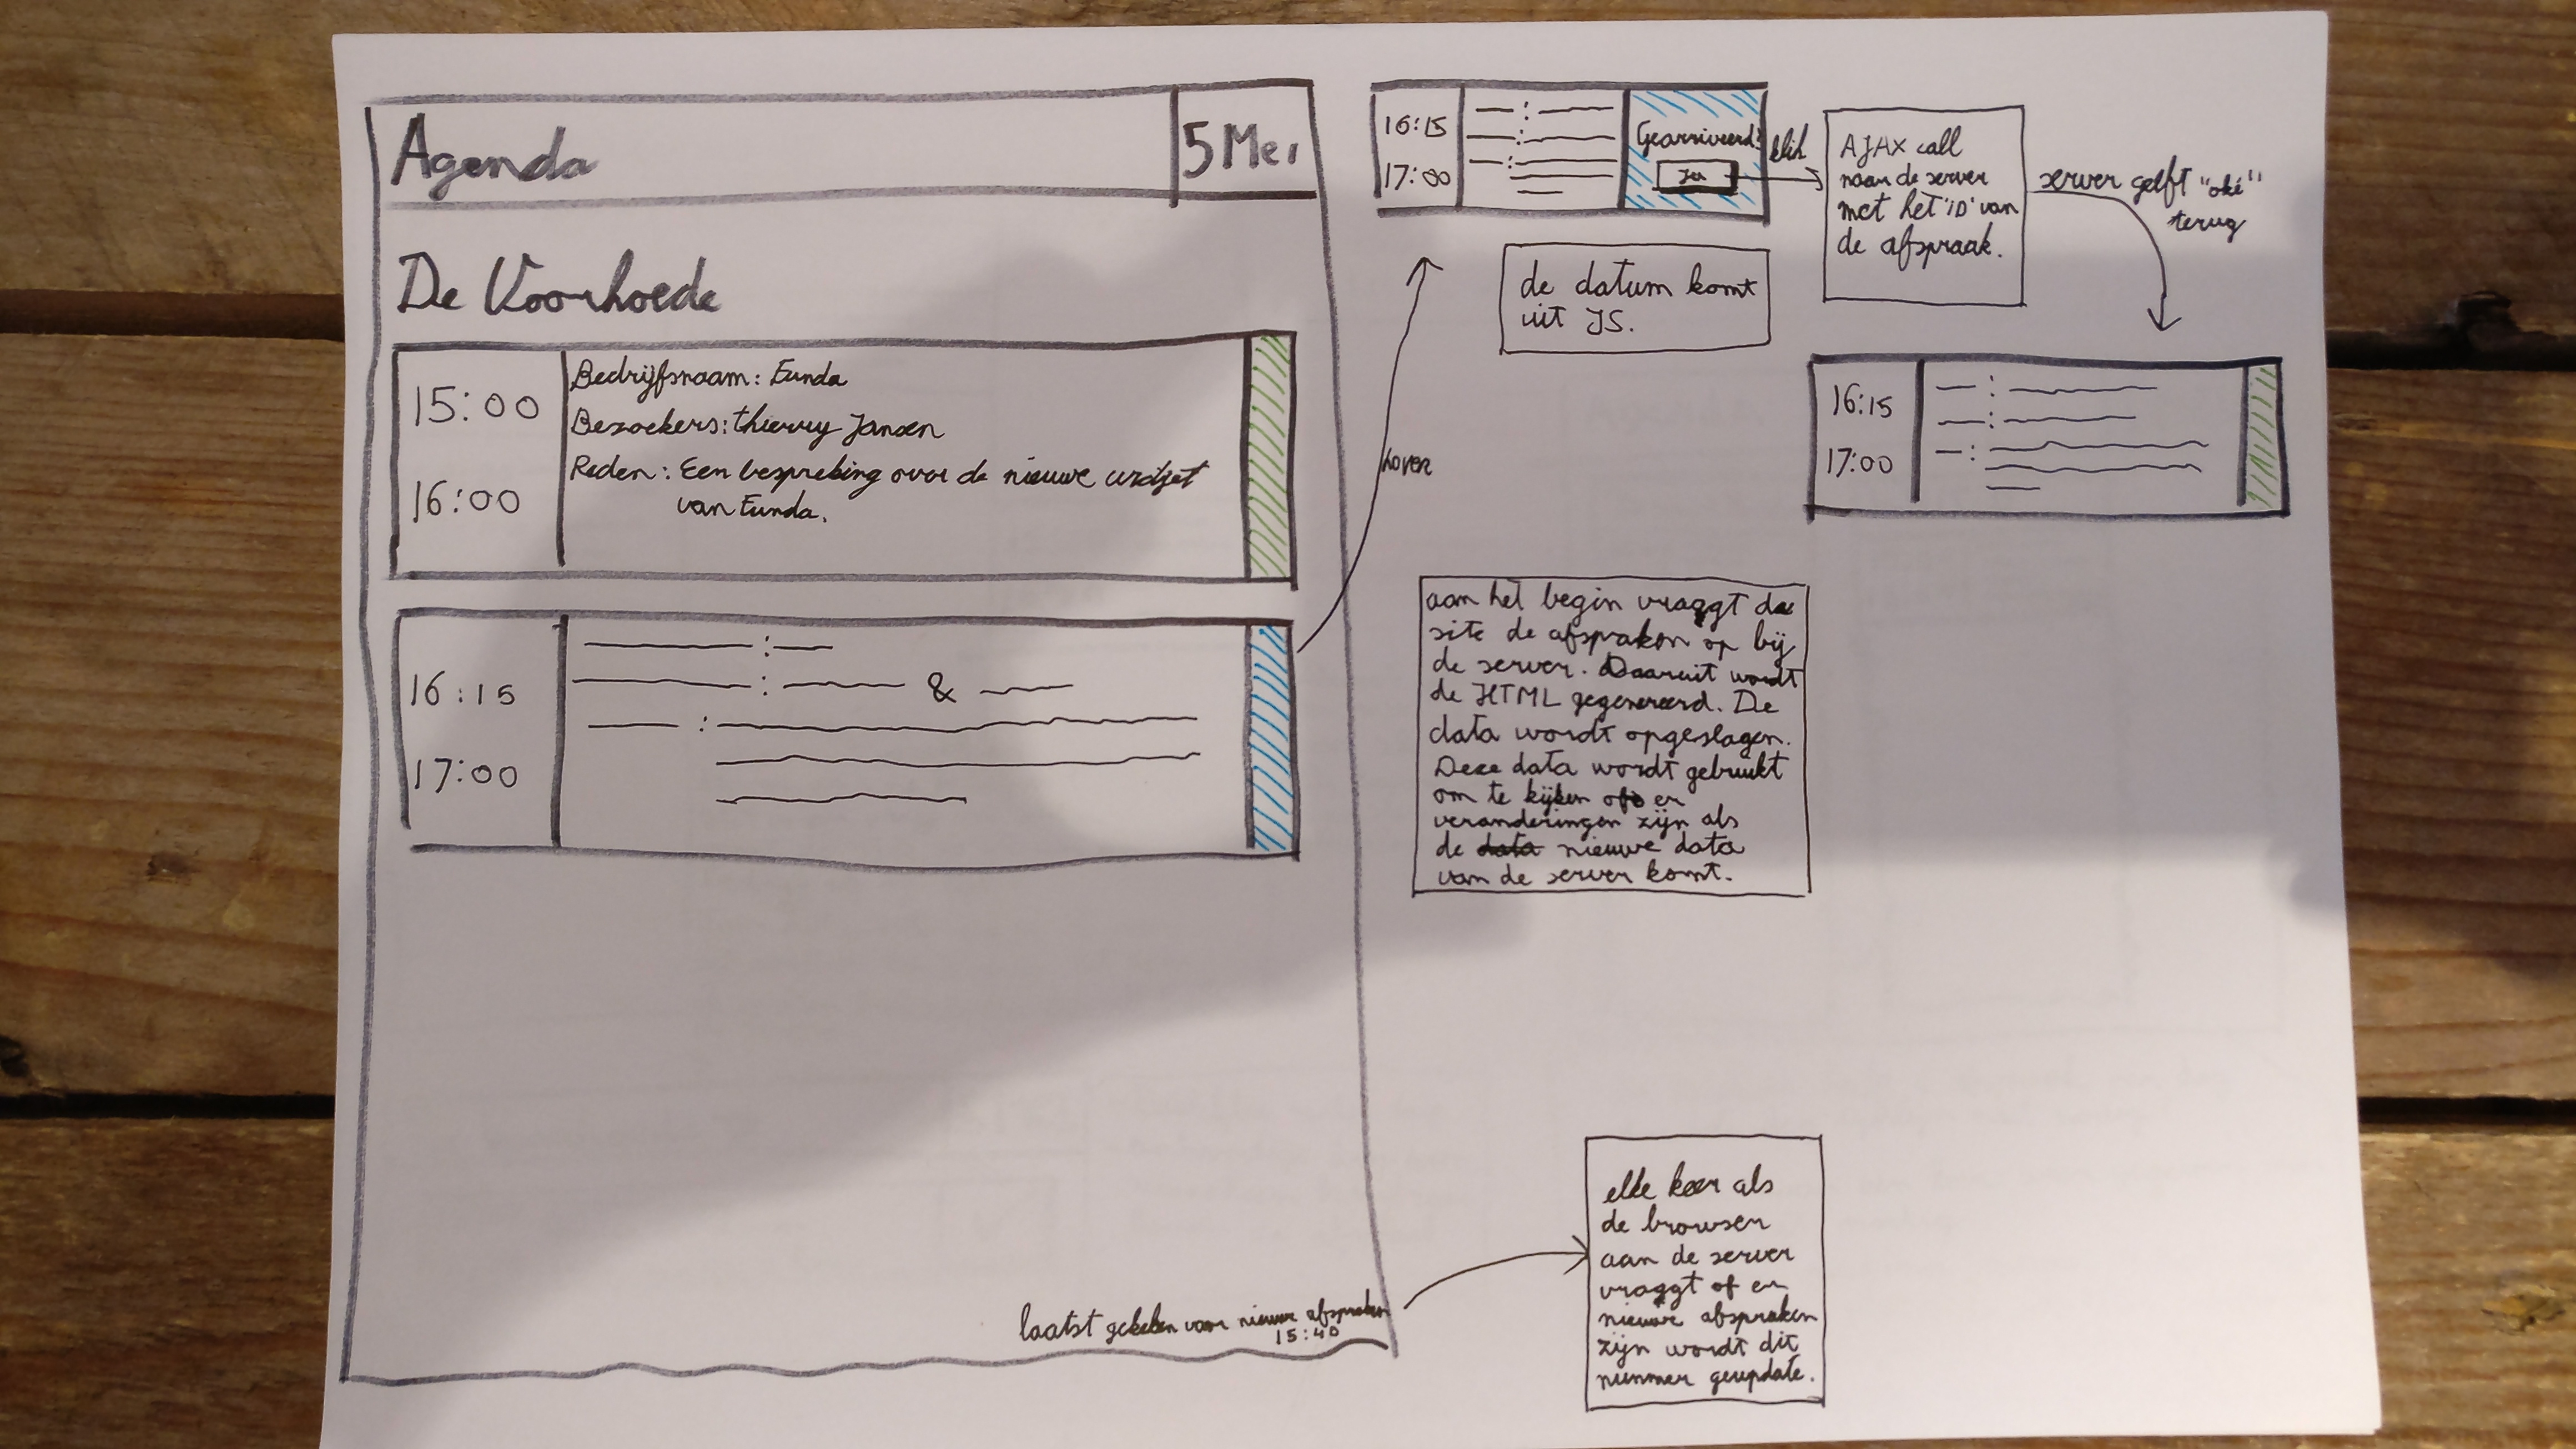 Agenda
5 Mei
De Voorhoede
15:00
16:00
Bedrijfsnaam: Funda
Bezoekers: thierry Jansen
Reden: Een bespreking over de nieuwe widget
van Funda.
16:15
17:00
&
laatst gekeken voor nieuwe afspraken
15:40
hover
16:15
17:00
Gearriveerd?
Ja
klik
AJAX call
naar de server
met het 'ID' van
de afspraak.
server geeft "oké"
terug
de datum komt
uit JS.
16:15
17:00
aan het begin vraagt de
site de afspraken op bij
de server. Daaruit wordt
de HTML gegenereerd. De
data wordt opgeslagen.
Deze data wordt gebruikt
om te kijken of er
veranderingen zijn als
de data nieuwe data
van de server komt.
elke keer als
de browser
aan de server
vraagt of er
nieuwe afspraken
zijn wordt dit
nummer geupdate.